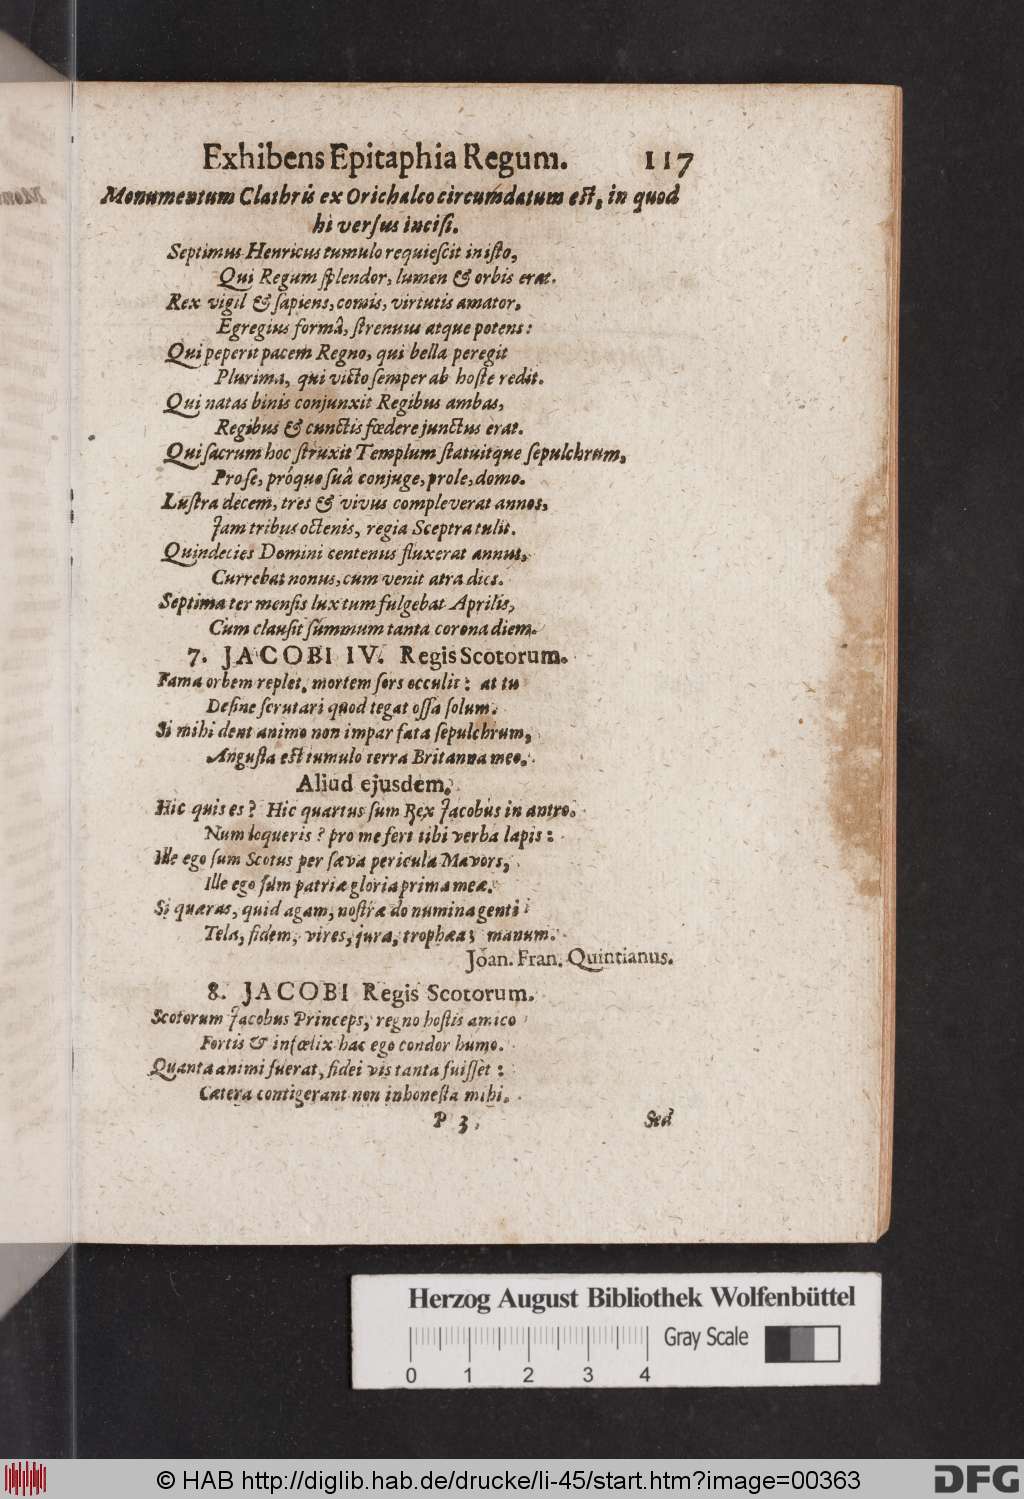 Exhibens Epitaphia Regum. 117
Monumentum Clathris ex Orichalco circumdatum est, in quod
hi versus incisi.
Septimus Henricus tumulo requiescit in isto,
Qui Regum splendor, lumen & orbis erat.
Rex vigil & sapiens, comis, virtutis amator,
Egregius formâ, strenuus atque potens:
Qui peperit pacem Regno, qui bella peregit
Plurima, qui victo semper ab hoste redit.
Qui natas binis conjunxit Regibus ambas,
Regibus & cunctis fœdere junctus erat.
Qui sacrum hoc struxit Templum statuitque sepulchrum,
Pro se, próque suâ conjuge, prole, domo.
Lustra decem, tres & vivus compleverat annos,
Jam tribus octenis, regia Sceptra tulit.
Quindecies Domini centenus fluxerat annus,
Currebat nonus, cum venit atra dies.
Septima ter mensis lux tum fulgebat Aprilis,
Cum clausit summum tanta corona diem.
7. JACOBI IV. Regis Scotorum.
Fama orbem replet, mortem sors occulit: at tu
Desine scrutari quod tegat ossa solum.
Si mihi dent animo non impar fata sepulchrum,
Angusta est tumulo terra Britanna meo.
Aliud ejusdem.
Hic quis es? Hic quartus sum Rex Jacobus in antro.
Num loqueris? pro me fert tibi verba lapis:
Ille ego sum Scotus per sæva pericula Mavors,
Ille ego sum patriæ gloria prima meæ.
Si quæras, quid agam, nostræ do numina genti
Tela, fidem, vires, jura, trophæa; manum.
Joan. Fran. Quintianus.
8. JACOBI Regis Scotorum.
Scotorum Jacobus Princeps, regno hostis amico
Fortis & infœlix hac ego condor humo.
Quanta animi fuerat, fidei vis tanta fuisset:
Cætera contigerant non inhonesta mihi.
P 3. Sed
Herzog August Bibliothek Wolfenbüttel
Gray Scale
0 1 2 3 4
© HAB http://diglib.hab.de/drucke/li-45/start.htm?image=00363
DFG